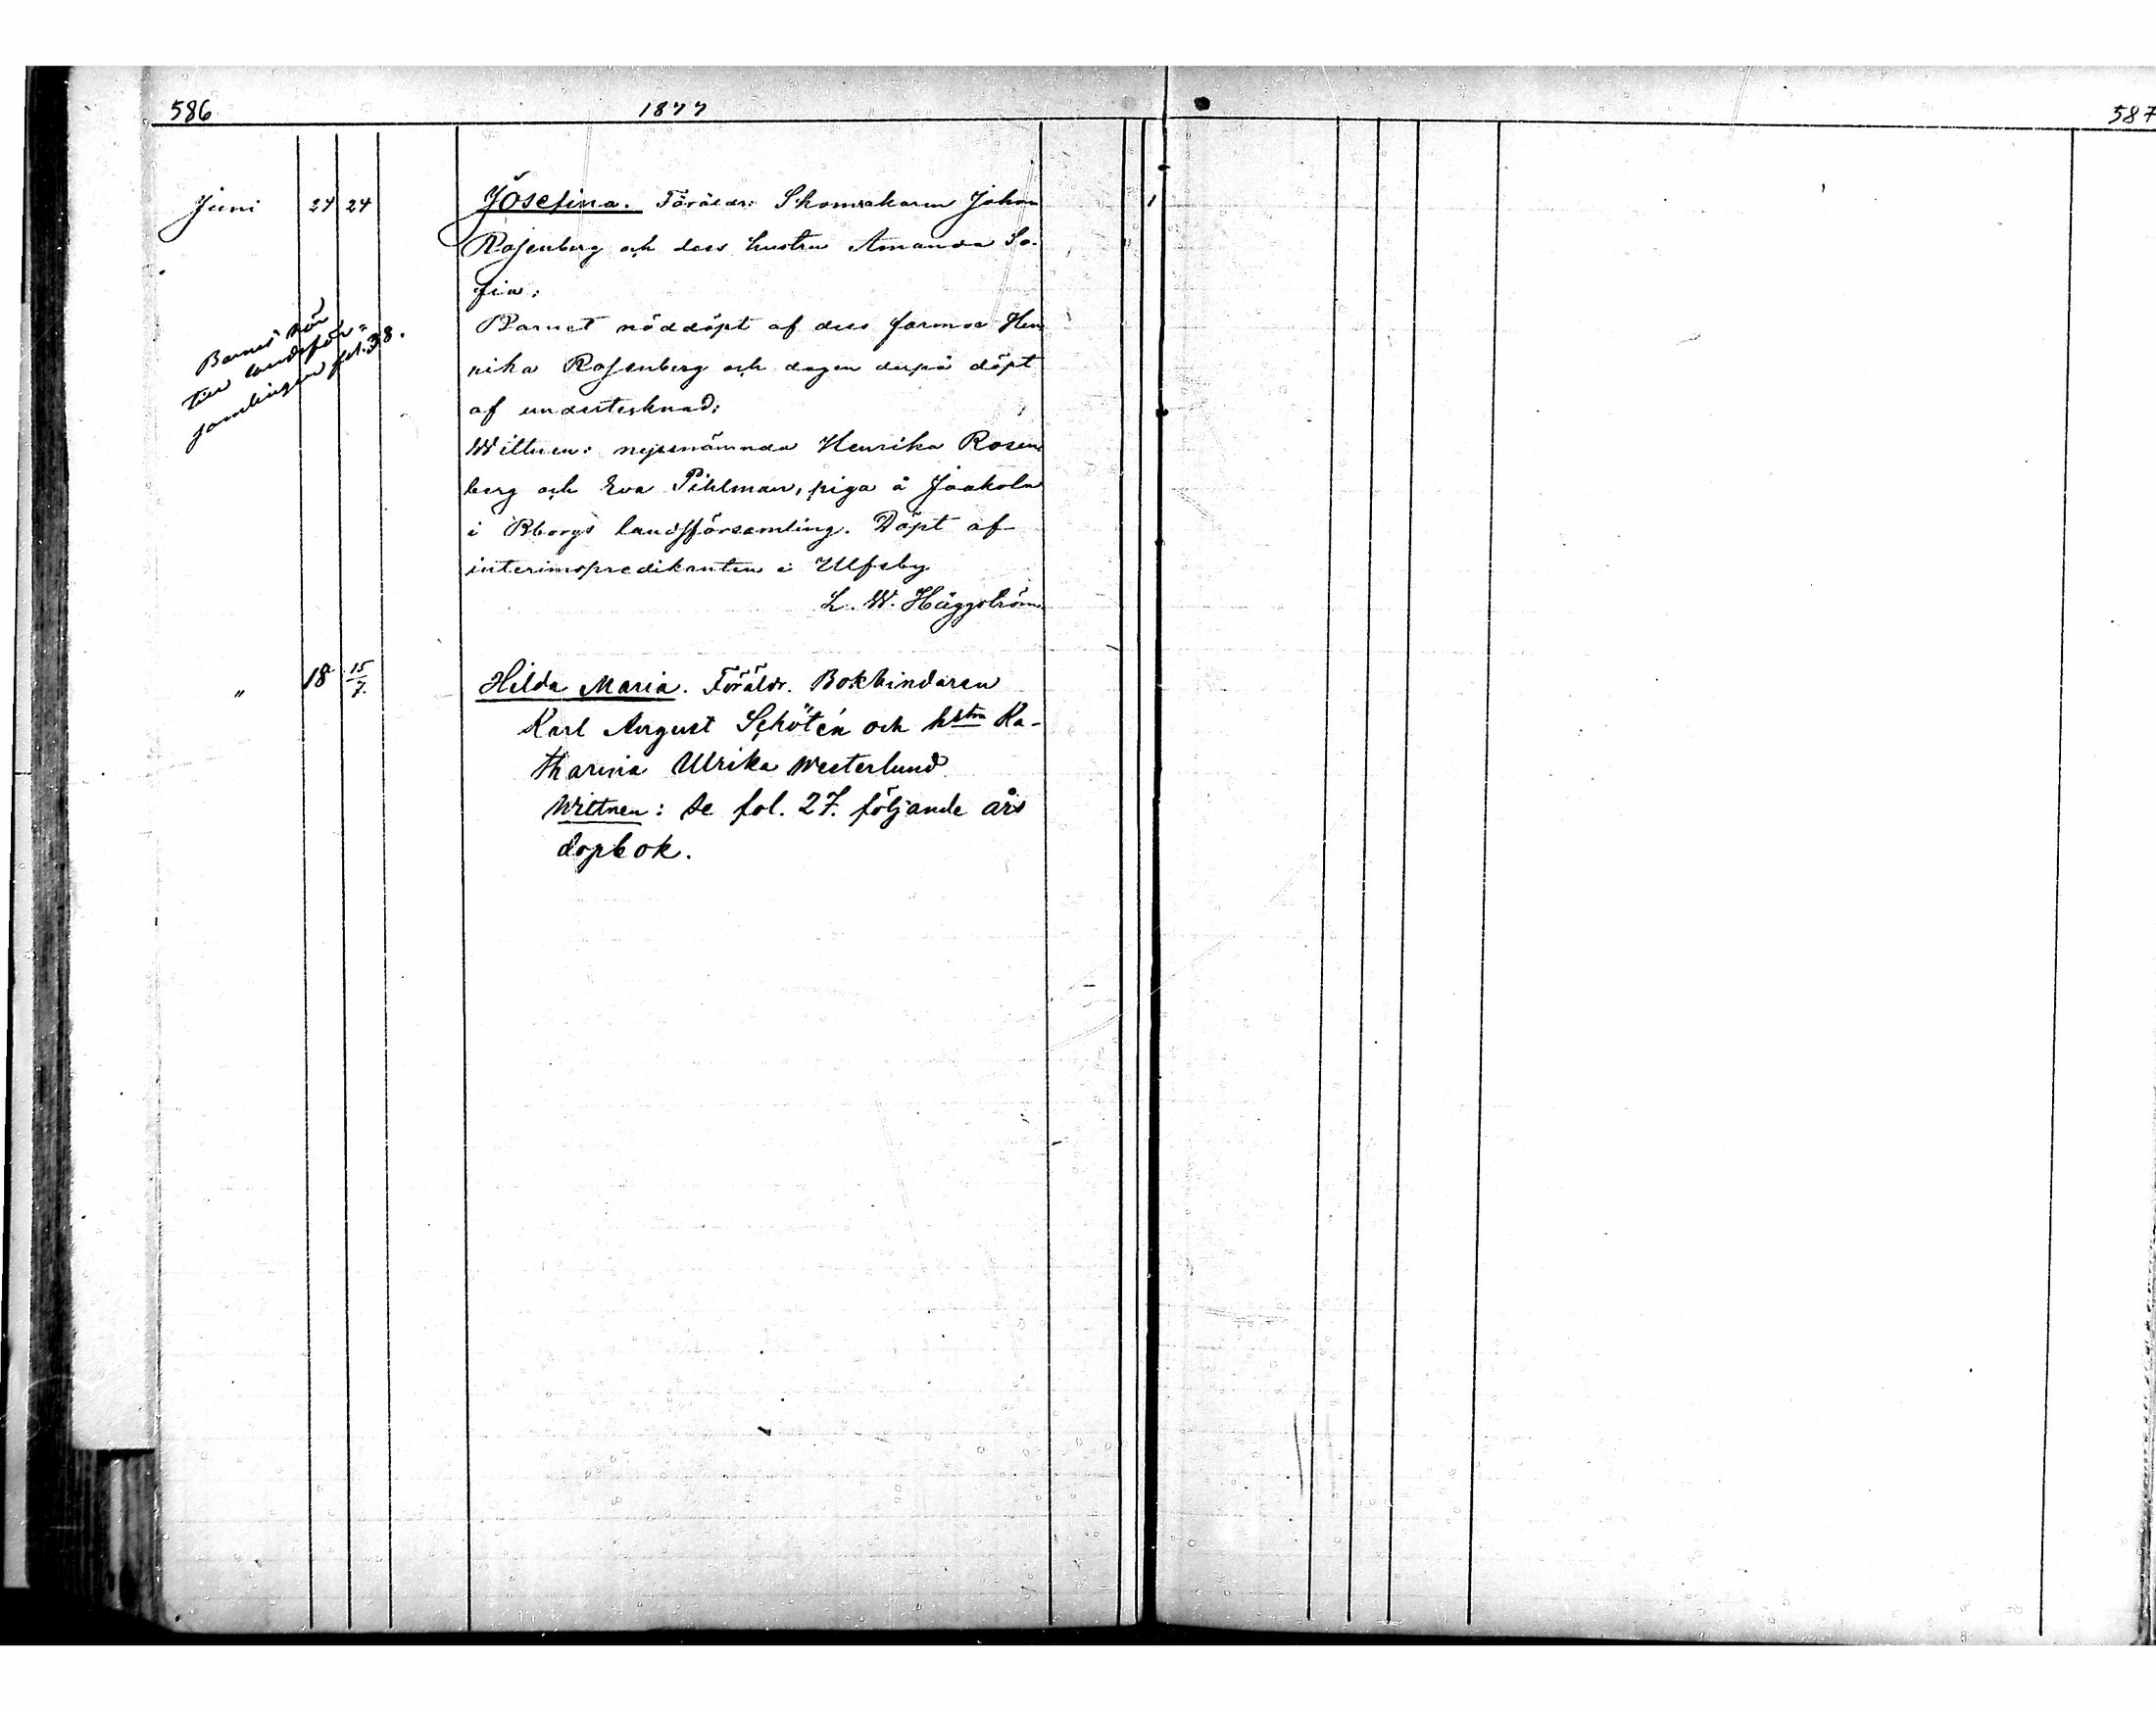 586
1877
587
Juni 24 24 Josefina. Föräldr: Skomakaren Johan
Rosenberg och dess hustru Amanda So-
fia;
Barnet nöddöpt af dess farmor Hen
rika Rosenberg och dagen derpå döpt
af undertecknad;
Wittnen: nyssnämnda Henrika Rosen
berg och Eva Pihlman, piga å Jaakola
i Bborgs landsförsamling. Döpt af
interimspredikanten i Ulfsby
L. W. Häggström
Barnet hör
till landsför=
samlingen fol. 38.
1
" 18 15/7. Hilda Maria. Föräldr. Bokbindaren
Karl August Schötén och hstru Ka-
tharina Ulrika Westerlund
Wittnen: Se fol. 27. följande års
dopbok.